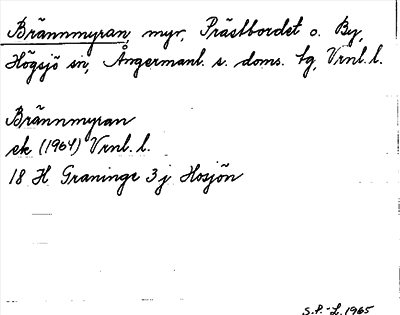 Brännmyran, myr, Prästbordet o. By,
Högsjö sn, Ångermanl. s. doms. tg, Vrnl. l.
Brännmyran
ek (1964) Vrnl. l.
18 H Graninge 3 j Hosjön
S.P.-L. 1965